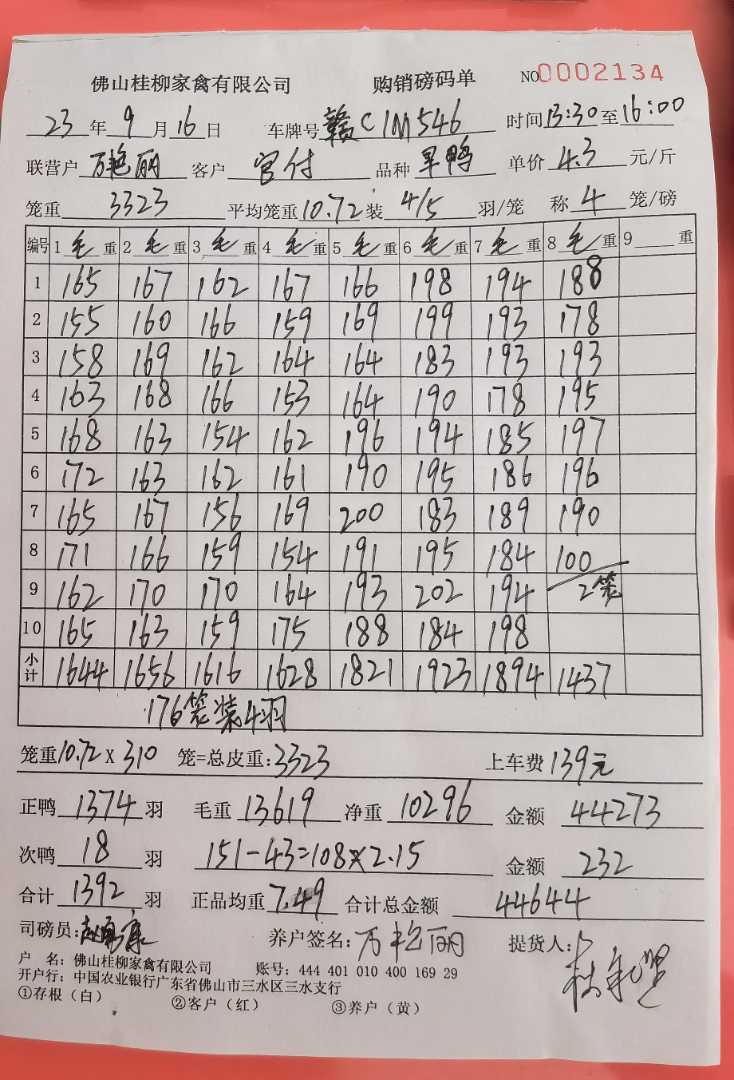 佛山桂柳家禽有限公司 购销磅码单 NO 0002134
23年9月16日 车牌号 赣C1M546 时间13:30至16:00
联营户 万艳丽 客户 官付 品种 旱鸭 单价 4.3 元/斤
笼重 3323 平均笼重10.72装 4/5 羽/笼 称 4 笼/磅
编号 1 毛 重 2 毛 重 3 毛 重 4 毛 重 5 毛 重 6 毛 重 7 毛 重 8 毛 重 9 重
1 165 167 162 167 166 198 194 188
2 155 160 166 159 169 199 193 178
3 158 169 162 164 164 183 193 193
4 163 168 166 153 164 190 178 195
5 168 163 154 162 196 194 185 197
6 172 163 162 161 190 195 186 196
7 165 167 156 169 200 183 189 190
8 171 166 159 154 191 195 184 100
9 162 170 170 164 193 202 194 2笼
10 165 163 159 175 188 184 198
小计 1644 1656 1616 1628 1821 1923 1894 1437
176笼装4羽
笼重10.72 X 310 笼=总皮重:3323 上车费 139元
正鸭 1374 羽 毛重 13619 净重 10296 金额 44273
次鸭 18 羽 151-43=108×2.15 金额 232
合计 1392 羽 正品均重 7.49 合计总金额 44644
司磅员: 养户签名:万艳丽 提货人:
户 名: 佛山桂柳家禽有限公司 账号: 444 401 010 400 169 29
开户行: 中国农业银行广东省佛山市三水区三水支行
①存根(白) ②客户(红) ③养户(黄)